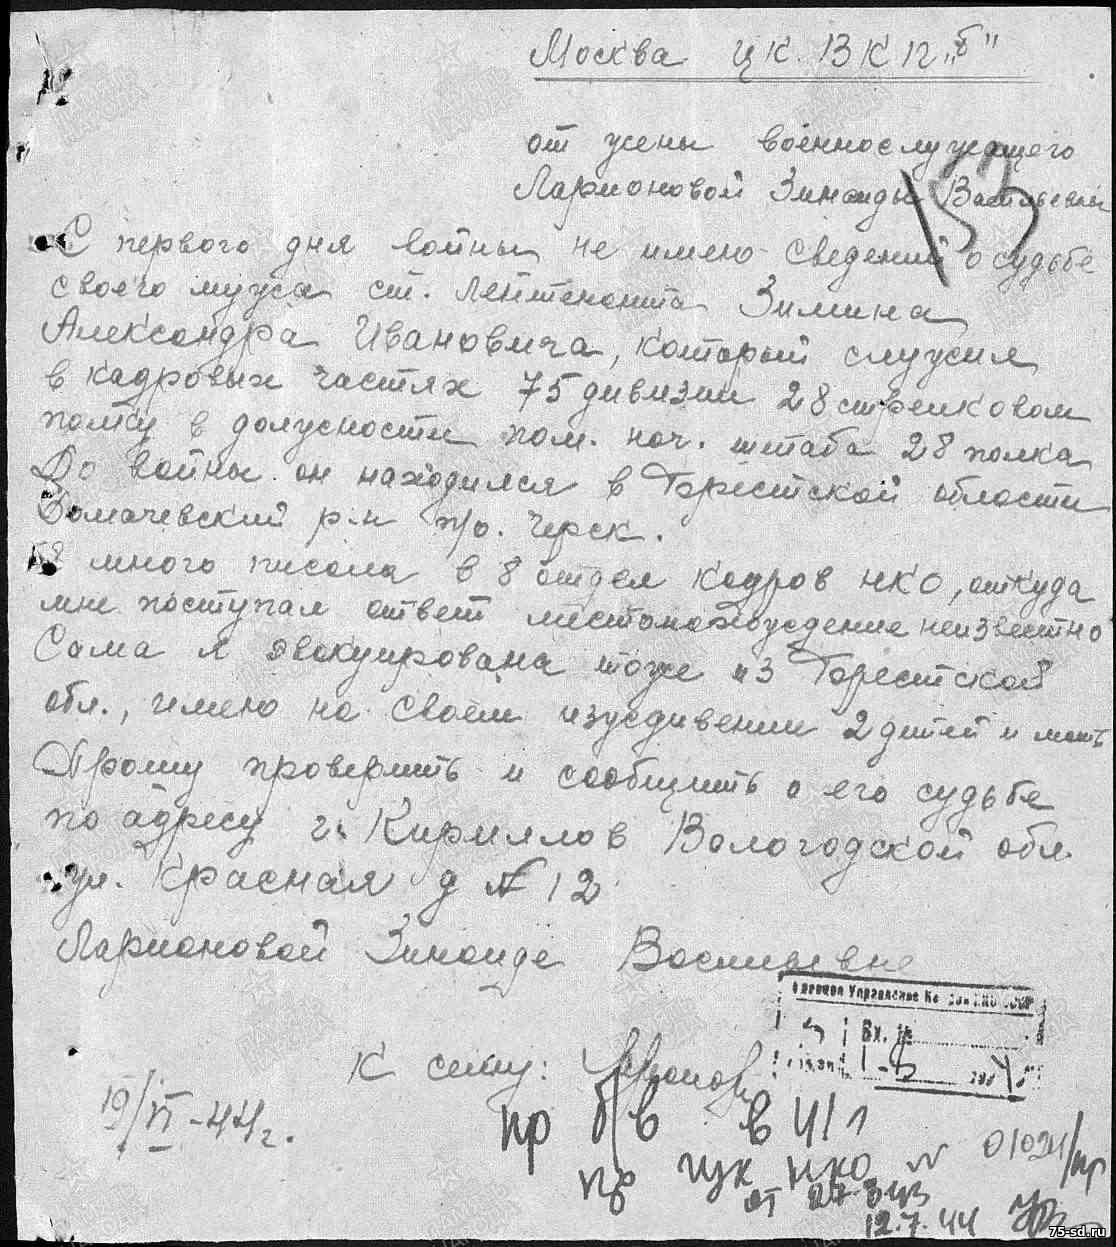 Москва ЦК ВКП „б"
от жены военнослужащего
Ларионовой Зинаиды Васильевны
153
С первого дня войны не имею сведений о судьбе
своего мужа ст. лейтенанта Зимина
Александра Ивановича, который служил
в кадровых частях 75 дивизии 28 стрелковом
полку в должности пом. нач. штаба 28 полка
До войны он находился в Брестской области
Домачевский р-н п/о. Черск.
Я много писала в 8 отдел кадров НКО, откуда
мне поступал ответ местонахождение неизвестно
Сама я эвакуирована тоже из Брестской
обл., имею на своем иждивении 2 детей и мать
Прошу проверить и сообщить о его судьбе
по адресу г. Кириллов Вологодской обл.
ул. Красная д № 12
Ларионовой Зинаиде Васильевне
Главное Управление НКО СССР
Вх. №
194
К сему: Ларионова
19/VI-44 г.
пр б/в в И/1
пр ГУК НКО № 01024/пр
от 27.3.43
12.7.44
75-sd.ru